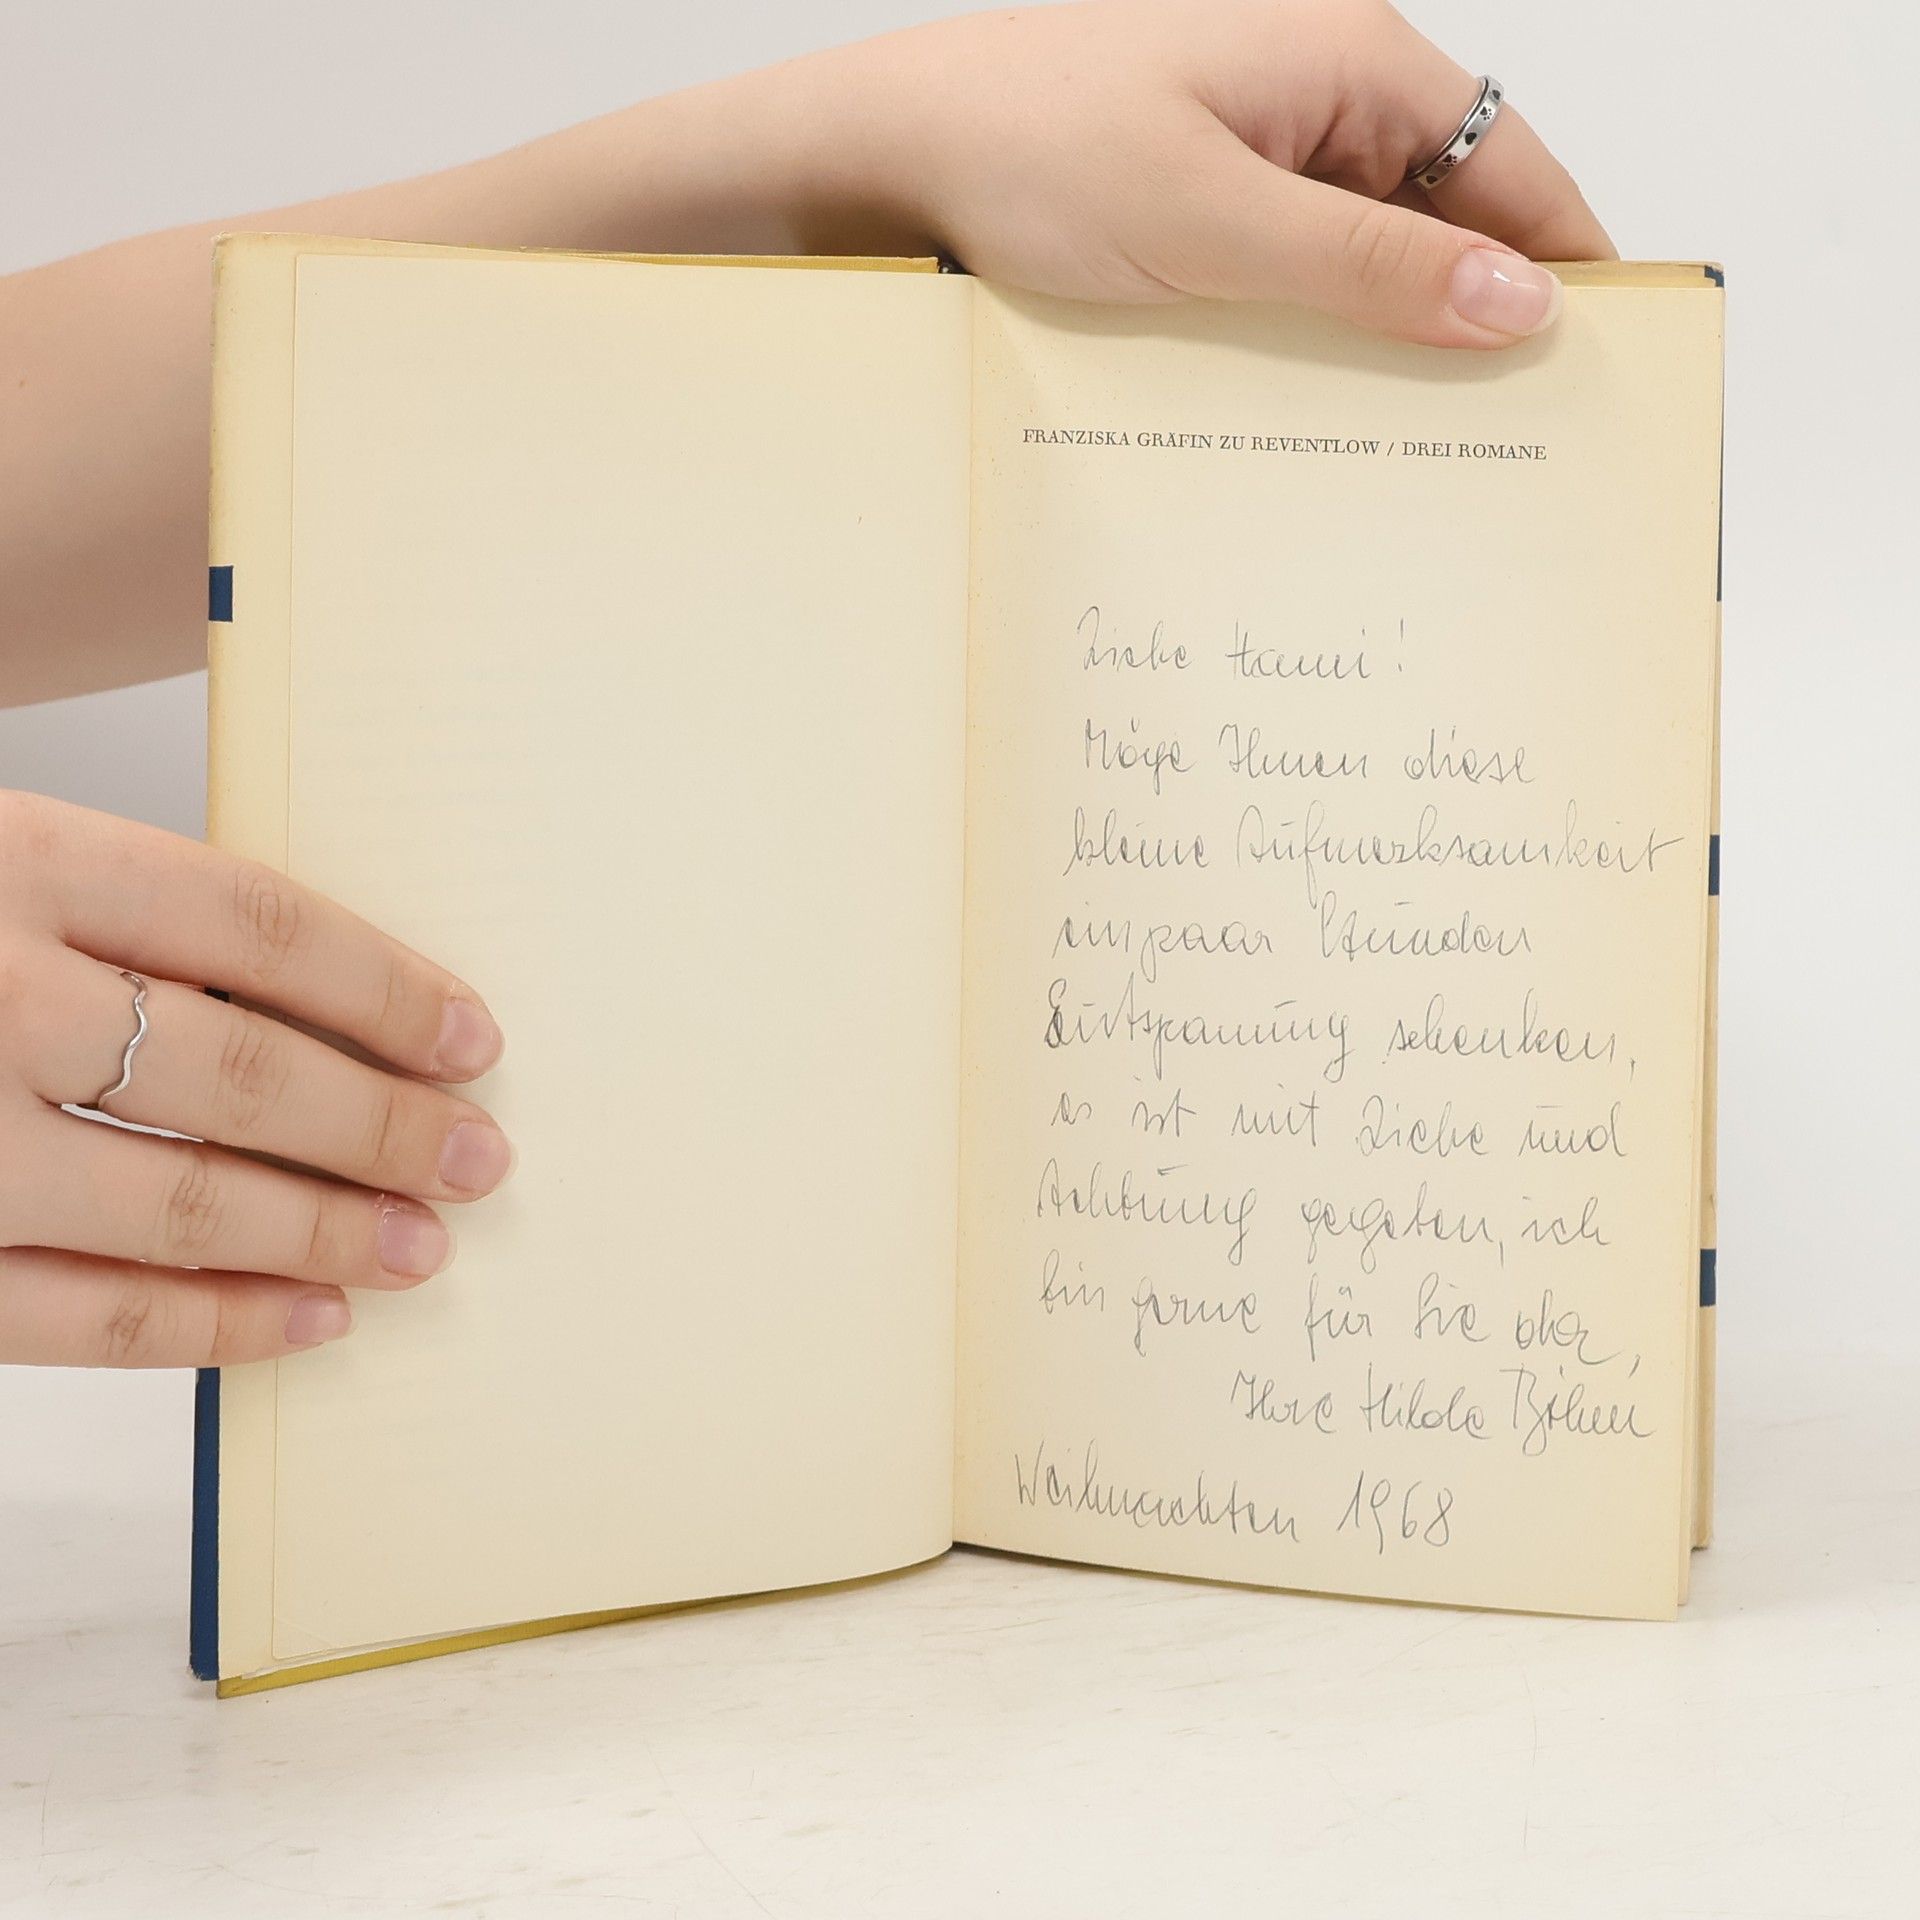 FRANZISKA GRÄFIN ZU REVENTLOW / DREI ROMANE
Liebe Hanni!
Möge Ihnen diese
kleine Aufmerksamkeit
ein paar Stunden
Entspannung schenken,
es ist mit Liebe und
Achtung gegeben, ich
bin gerne für Sie da,
Ihre Hilde
Weihnachten 1968